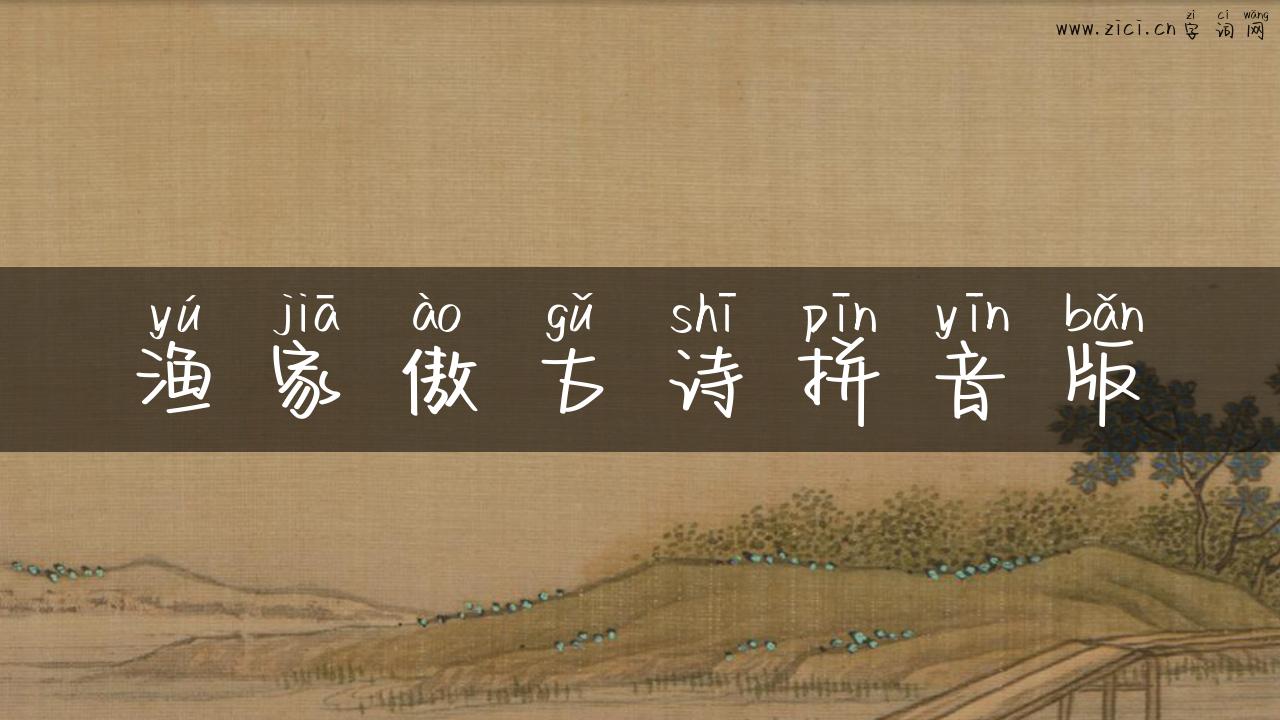 zì cí wǎng
www.zici.cn 字词网
yú jiā ào gǔ shī pīn yīn bǎn
渔家傲古诗拼音版